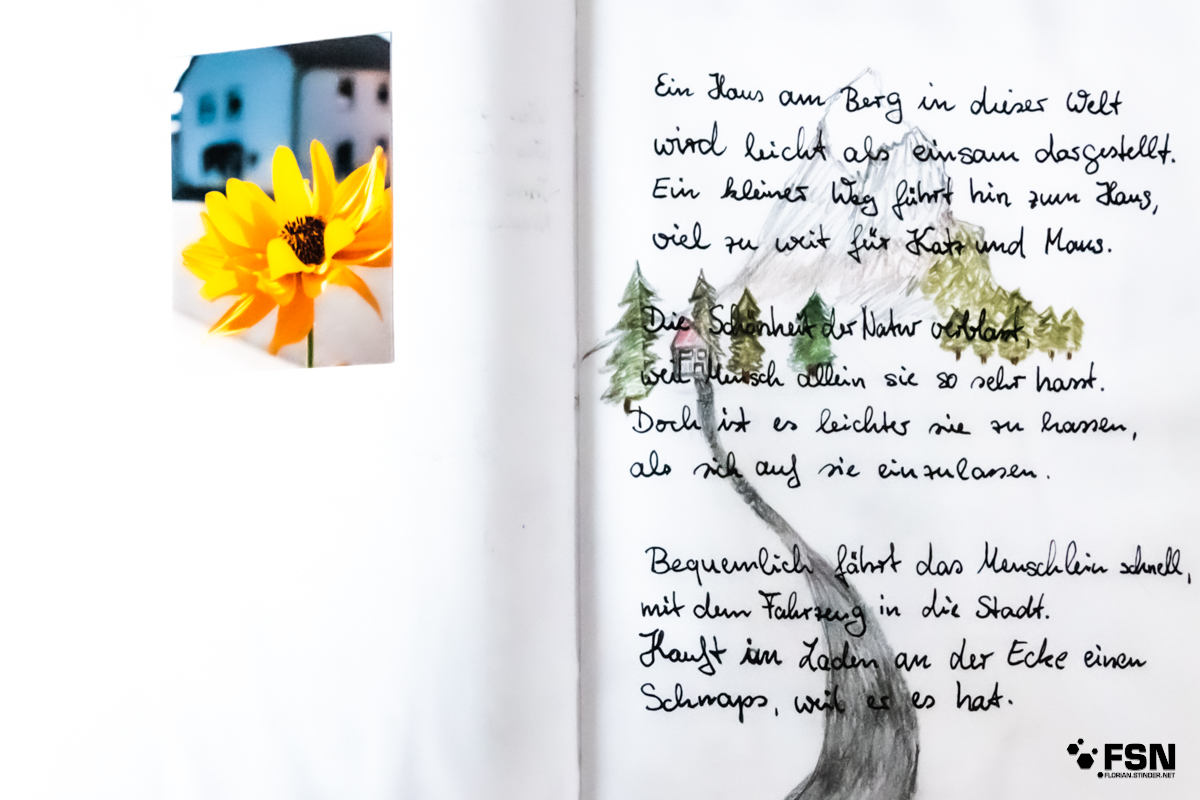 Ein Haus am Berg in dieser Welt
wird leicht als einsam dargestellt.
Ein kleiner Weg führt hin zum Haus,
viel zu weit für Katz und Maus.
Die Schönheit der Natur verblasst,
weil Mensch allein sie so sehr hasst.
Doch ist es leichter sie zu hassen,
als sich auf sie einzulassen.
Bequemlich fährt das Menschlein schnell,
mit dem Fahrzeug in die Stadt.
Kauft im Laden an der Ecke einen
Schnaps, weil er es hat.
FSN
FLORIAN.STINDER.NET